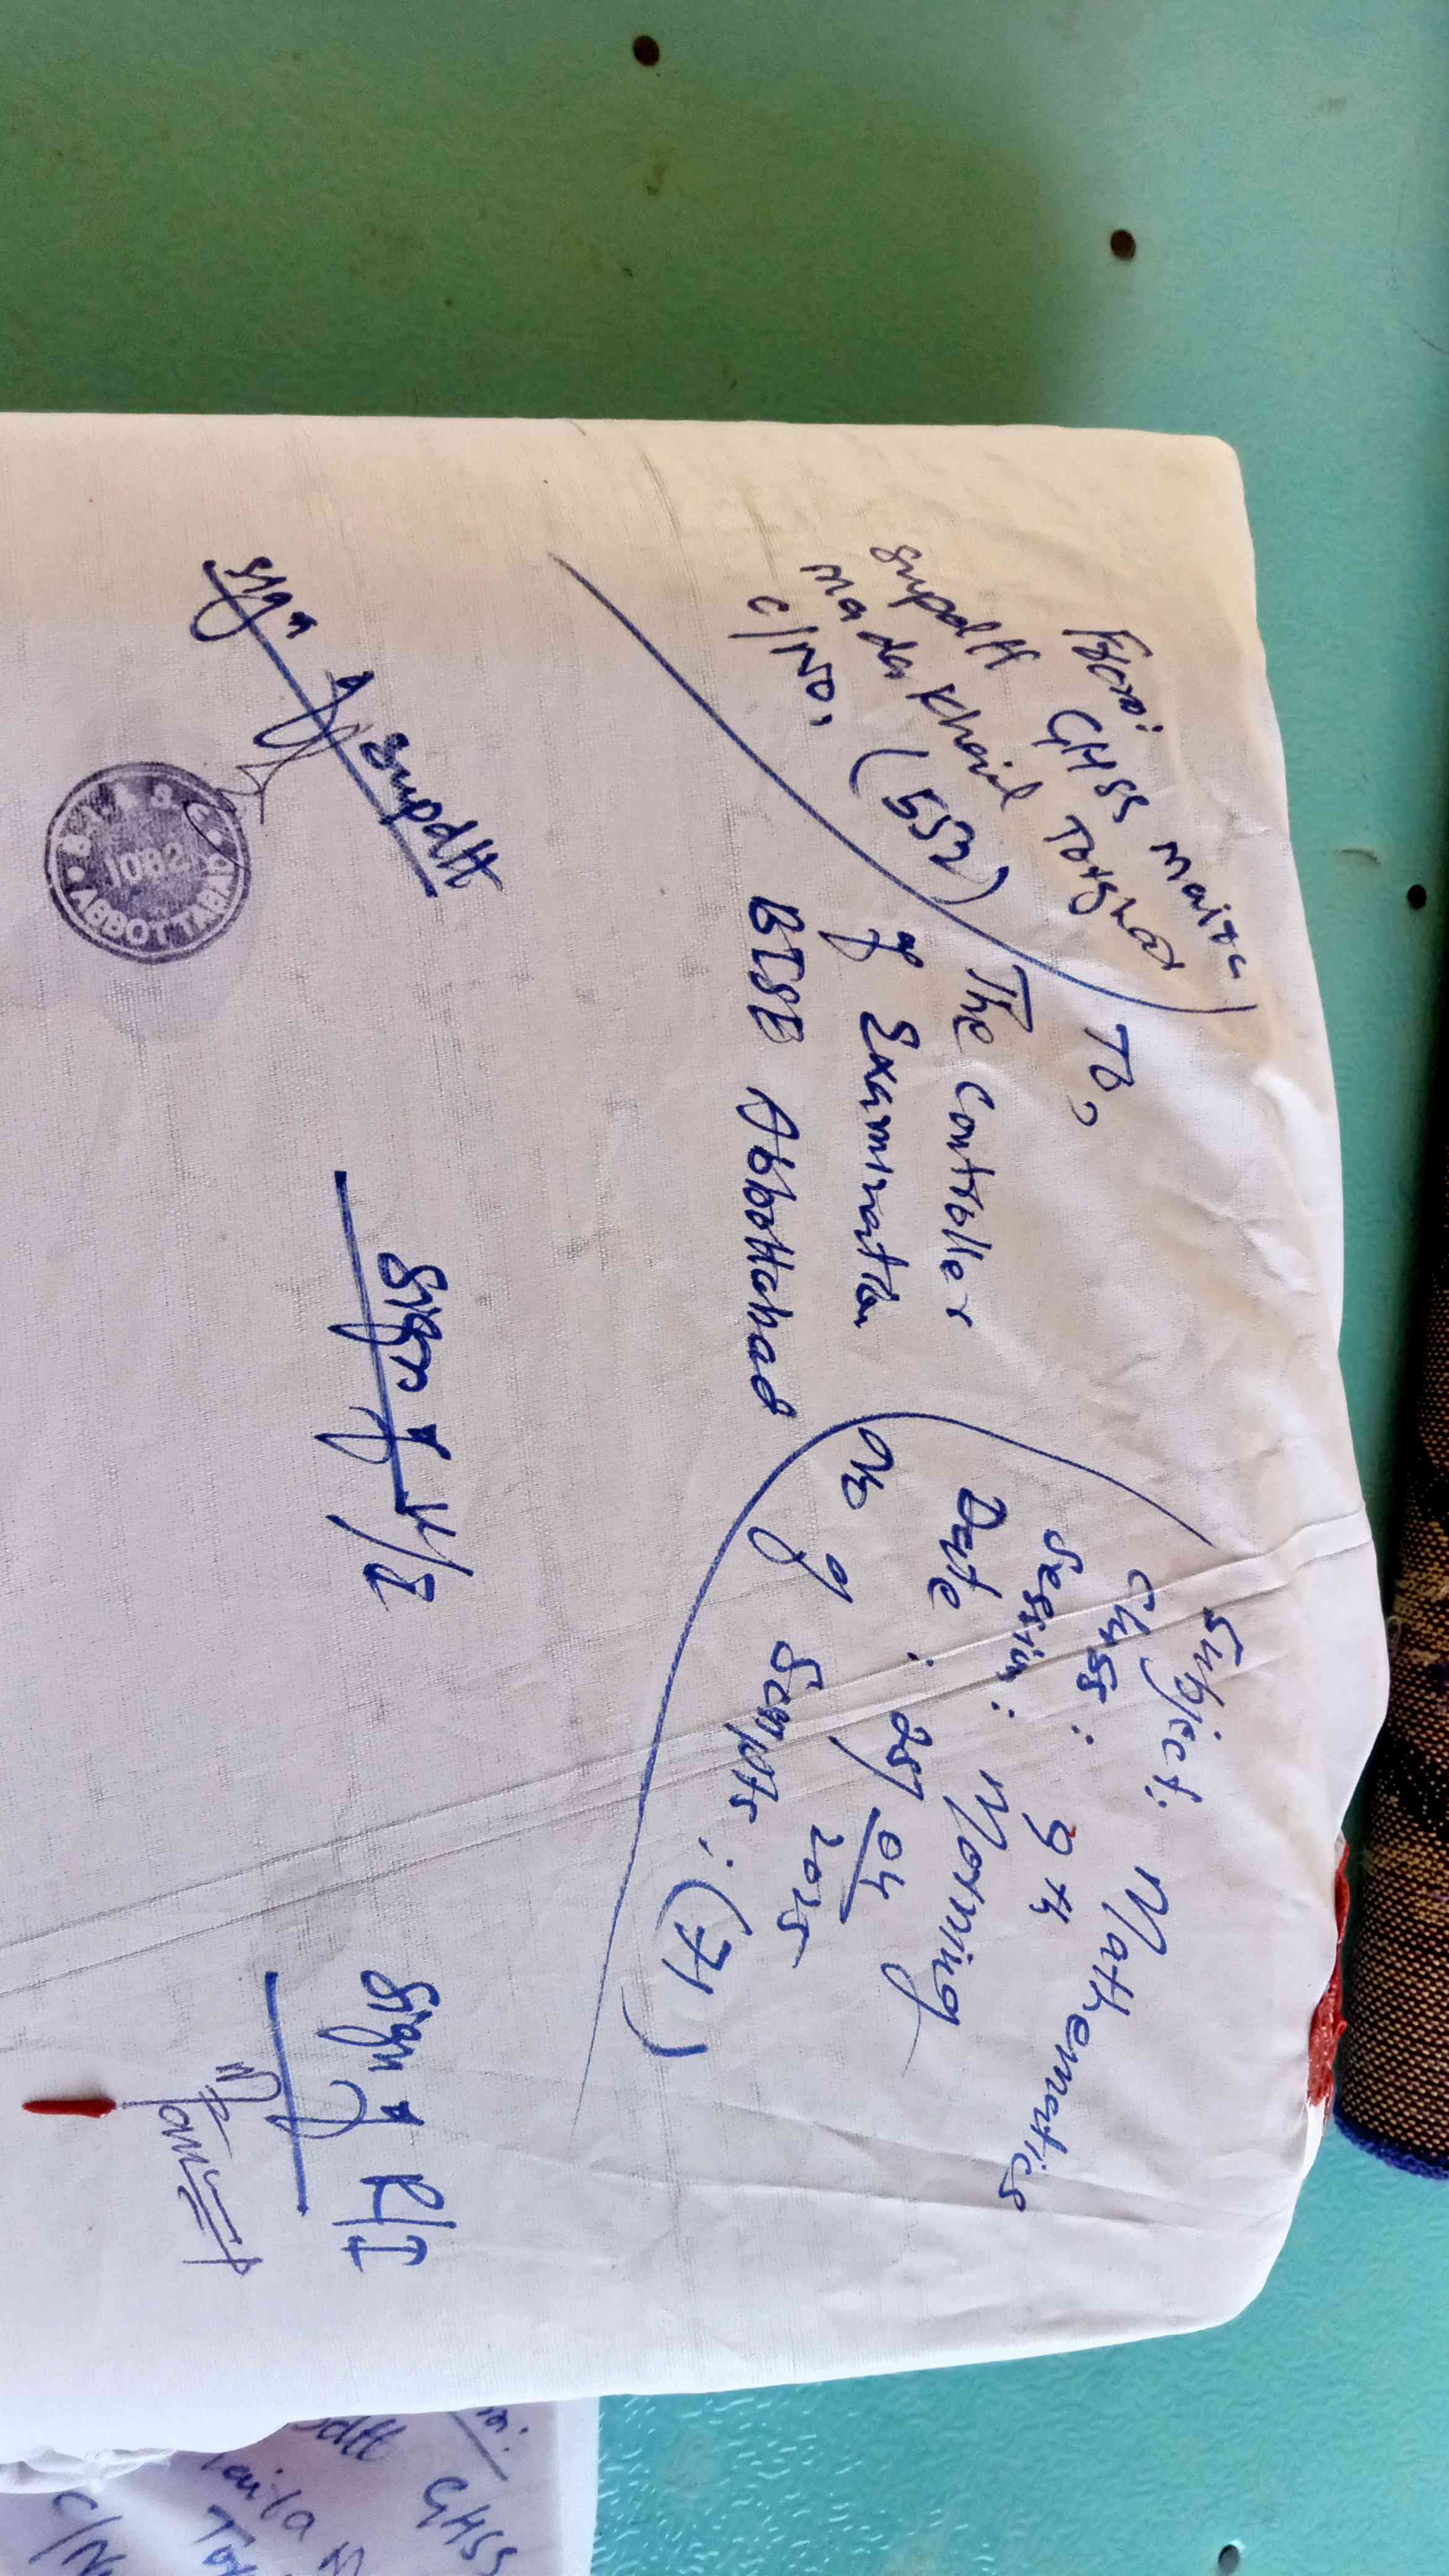 From:
Supdtt GHSS Maira
Mada Khail Torghar
C/No, (552)
To,
The Controller
of Examination
BISE Abbottabad
Subject: Mathematics
Class: 9th
Session: Morning
Date: 25/04
2025
No of Scripts: (71)
Sign of Supdtt
B.I.& S.E.
1082
ABBOTTABAD
Sign of
Sign of R/I
GHSS
C/No